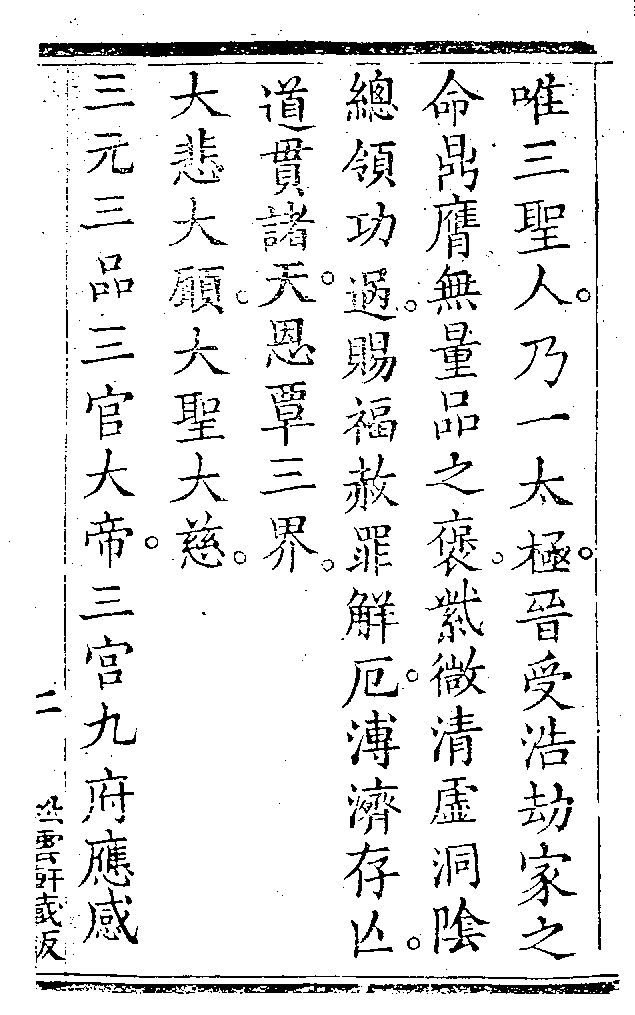 唯三聖人。乃一太極。晉受浩劫家之
命鼎膺無量品之褒。紫微清虛洞陰
總領功過。賜福赦罪解厄。溥濟存亾。
道貫諸天。恩覃三界。
大悲大願。大聖大慈。
三元三品三官大帝。三宮九府應感
二
雲軒藏板